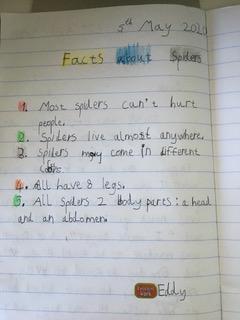 5th May 2020
Facts about Spiders
1. Most spiders can't hurt
people.
2. Spiders live almost anywhere.
3. Spiders may come in different
4. All have 8 legs.
5. All spiders 2 body parts: a head
and an abdomen.
Eddy